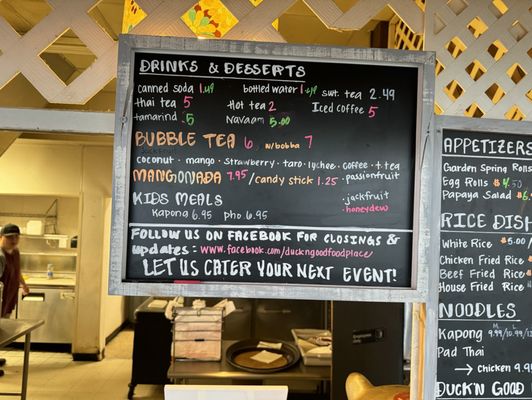 DRINKS & DESSERTS
canned soda 1.49 bottled water 1.49 swt. tea 2.49
thai tea 5 Hot tea 2 Iced coffee 5
tamarind .5 Navaam 5.00
BUBBLE TEA 6 w/boba 7
coconut · mango · strawberry · taro · lychee · coffee · t. tea
MANGONADA 7.95 /candy stick 1.25 · passionfruit
· jackfruit
· honeydew
KIDS MEALS
Kapong 6.95 pho 6.95
FOLLOW US ON FACEBOOK FOR CLOSINGS &
updates: www.facebook.com/duckngoodfoodplace/
LET US CATER YOUR NEXT EVENT!
APPETIZERS
Garden Spring Rolls
Egg Rolls
Papaya Salad
RICE DISH
White Rice 5.00
Chicken Fried Rice
Beef Fried Rice
House Fried Rice
NOODLES
Kapong 9.99/10.99/12
Pad Thai
→ chicken 9.95
DUCK'N GOOD